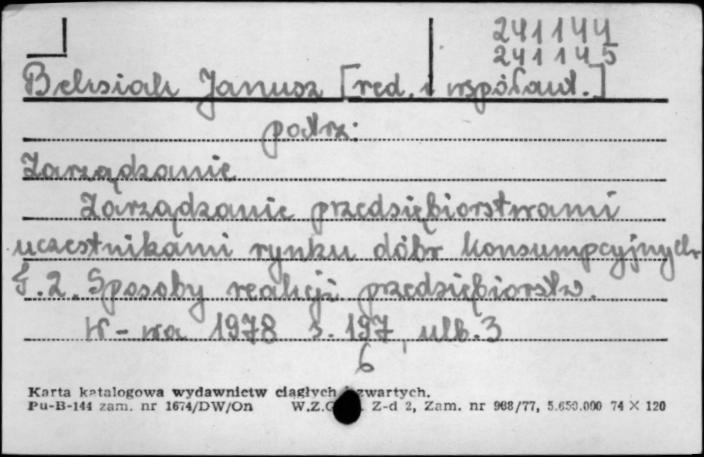 241144
241145
Beksiak Janusz [red. i współaut.]
patrz:
Zarządzanie
Zarządzanie przedsiębiorstwami
uczestnikami rynku dóbr konsumpcyjnych
T. 2. Sposoby reakcji przedsiębiorstw.
W-wa 1978 s. 197, ulb. 3
6
Karta katalogowa wydawnictw ciągłych zwartych.
Pu-B-144 zam. nr 1674/DW/On W.Z.G. Z-d 2, Zam. nr 968/77, 5.650.000 74 X 120